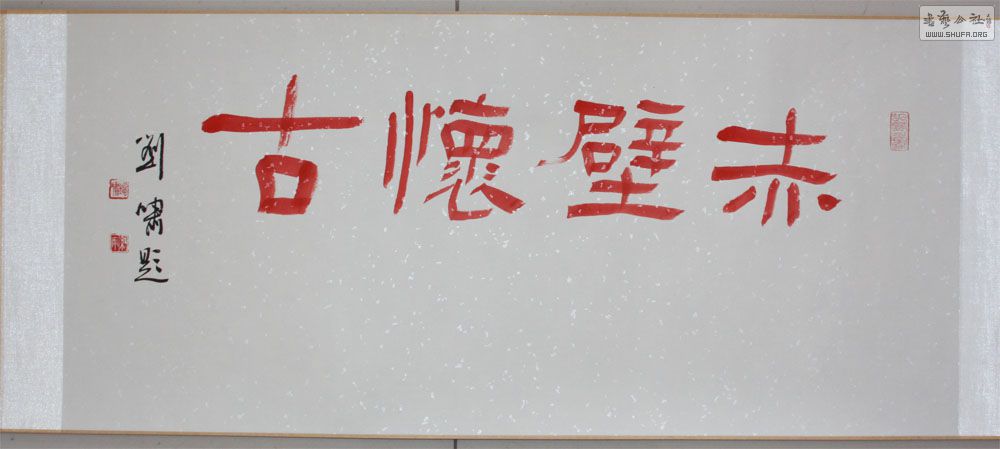 赤壁懷古
劉嘯題
書藝公社
WWW.SHUFA.ORG